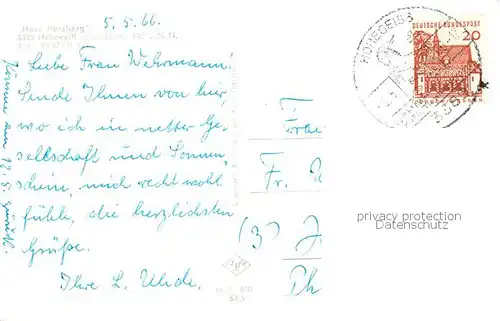 5.5.66.
"Haus Herzberg"
Liebe Frau Wehrmann!
Sende Ihnen von hier,
wo ich in netter Ge-
sellschaft und Sonnen-
schein, mich recht wohl
fühle, die herzlichsten
Grüße.
Ihre L. Uhde.
Komme am 12.5. zurück.
HOHEGEISS
DEUTSCHE BUNDESPOST
20
Frau
Fr.
(3)
privacy protection
Datenschutz